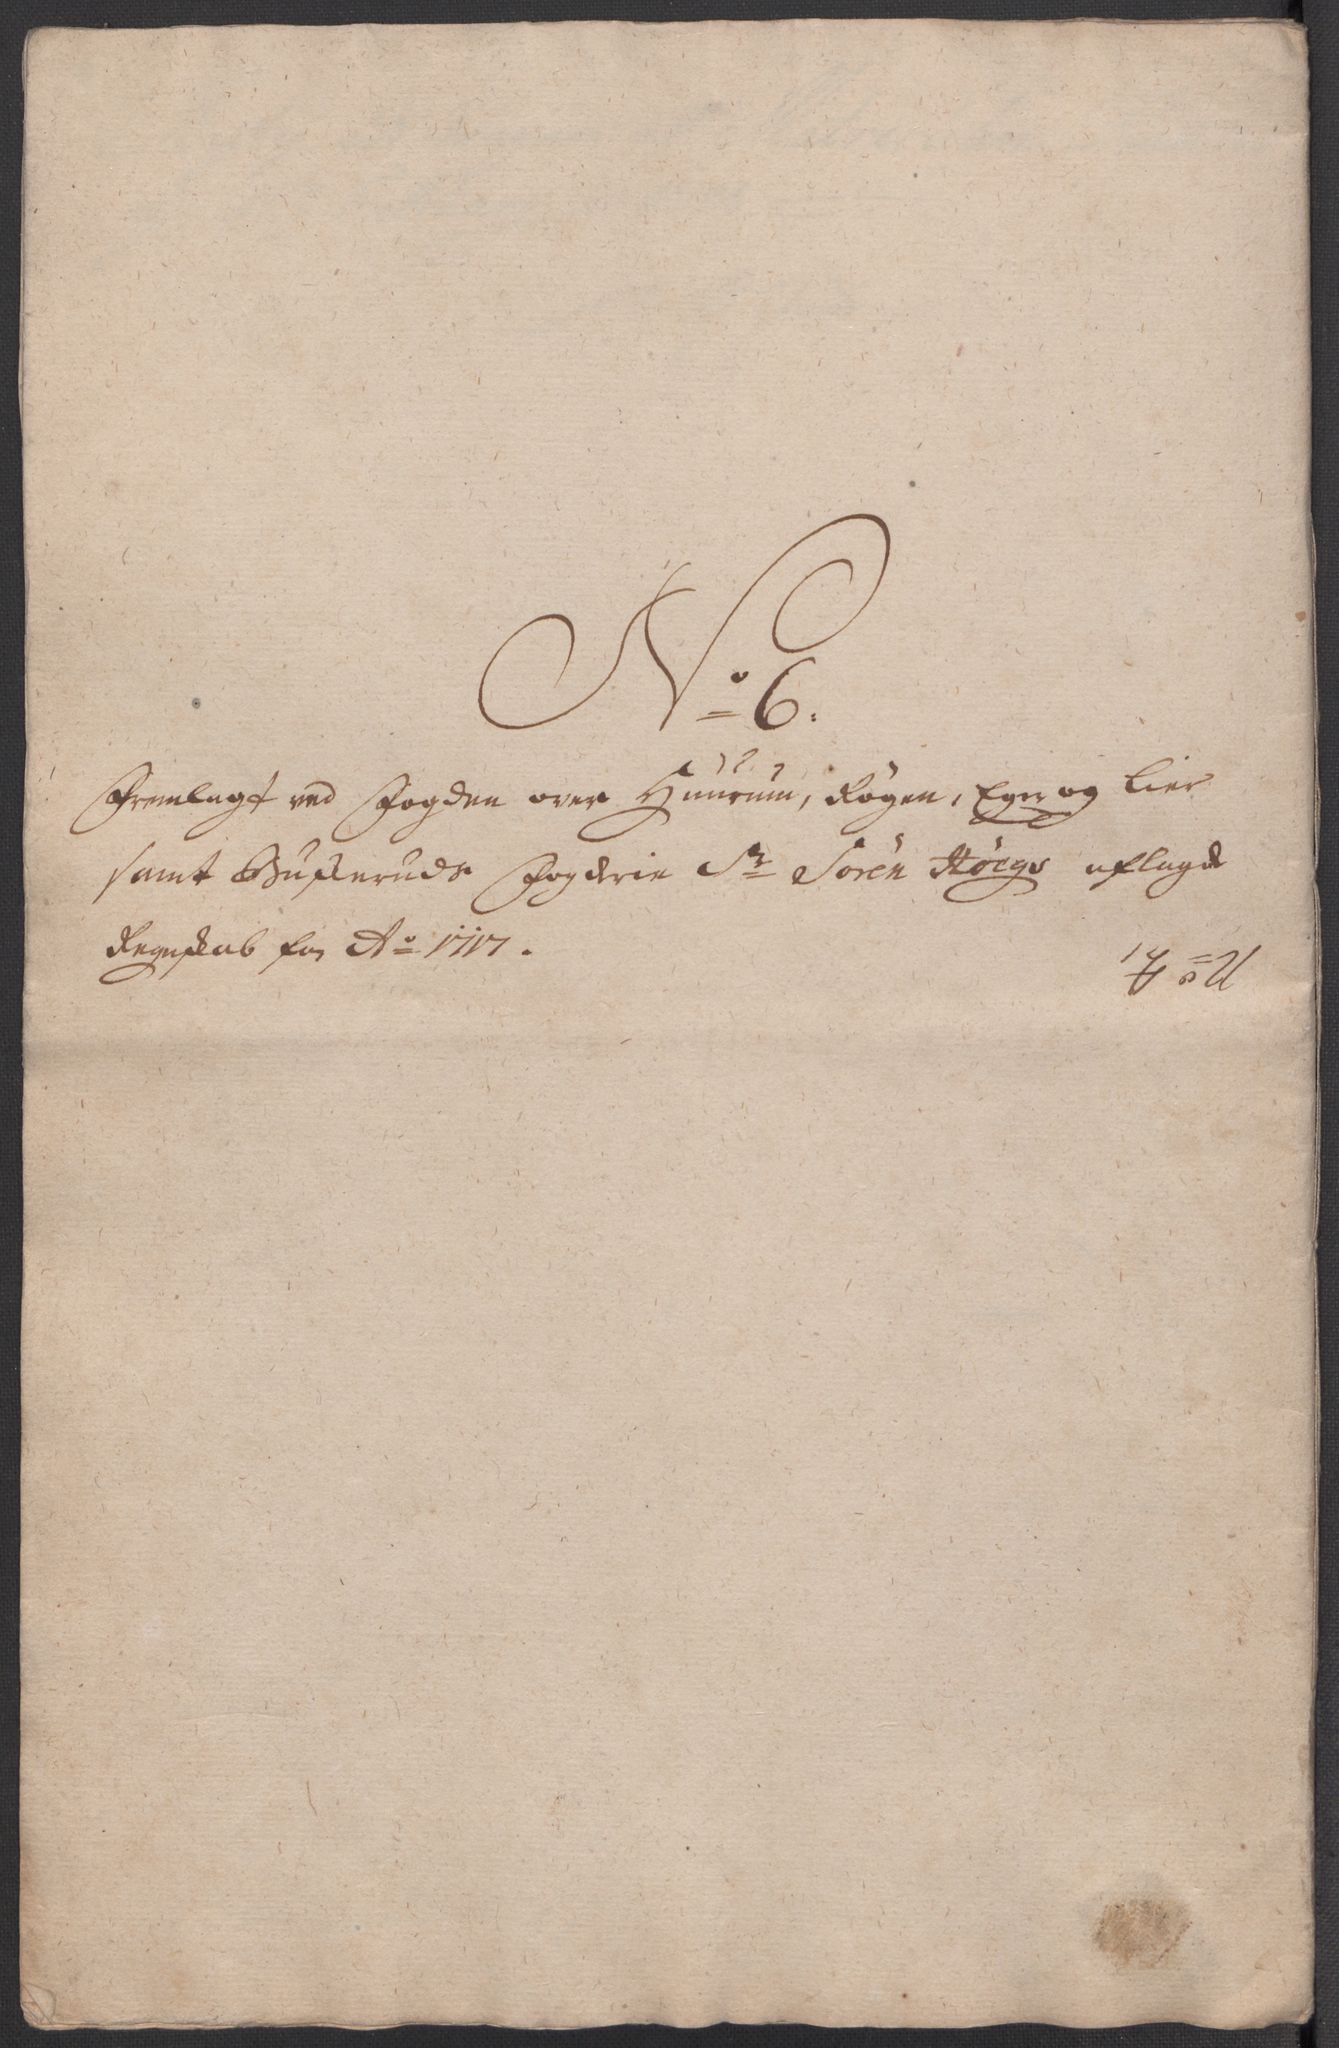 No 6.
Fremlagt ved Fogden over Huurum, Røgen, Eger og Lier
samt Buskeruds Fogderie Sr Søren Høegs aflagde
Regnskab for Ao 1717.